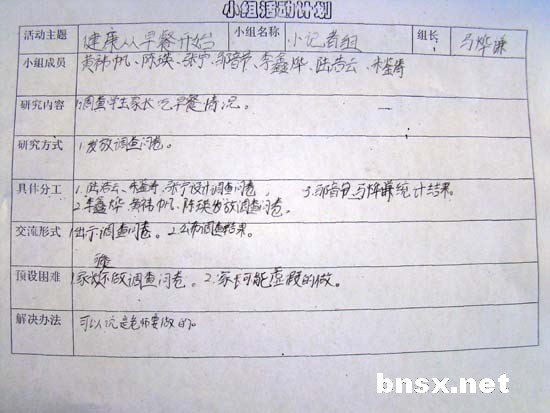 小组活动计划
活动主题 健康从早餐开始 小组名称 小记者组 组长 马烨谦
小组成员 黄祎帆、陈瑛、张宁、邹音节、李鑫烨、陆浩云、朱鉴涛
研究内容 调查学生家长吃早餐情况。
研究方式 1.发放调查问卷。
具体分工 1.陆浩云、朱鉴涛、张宁设计调查问卷, 3.邹音节、马烨谦统计结果。
2.李鑫烨、黄祎帆、陈瑛发放调查问卷。
交流形式 1.出示调查问卷。2.公布调查结果。
预设困难 1.家长不做调查问卷。2.家长可能虚假的做。
解决办法 可以说是老师要做的。
bnsx.net